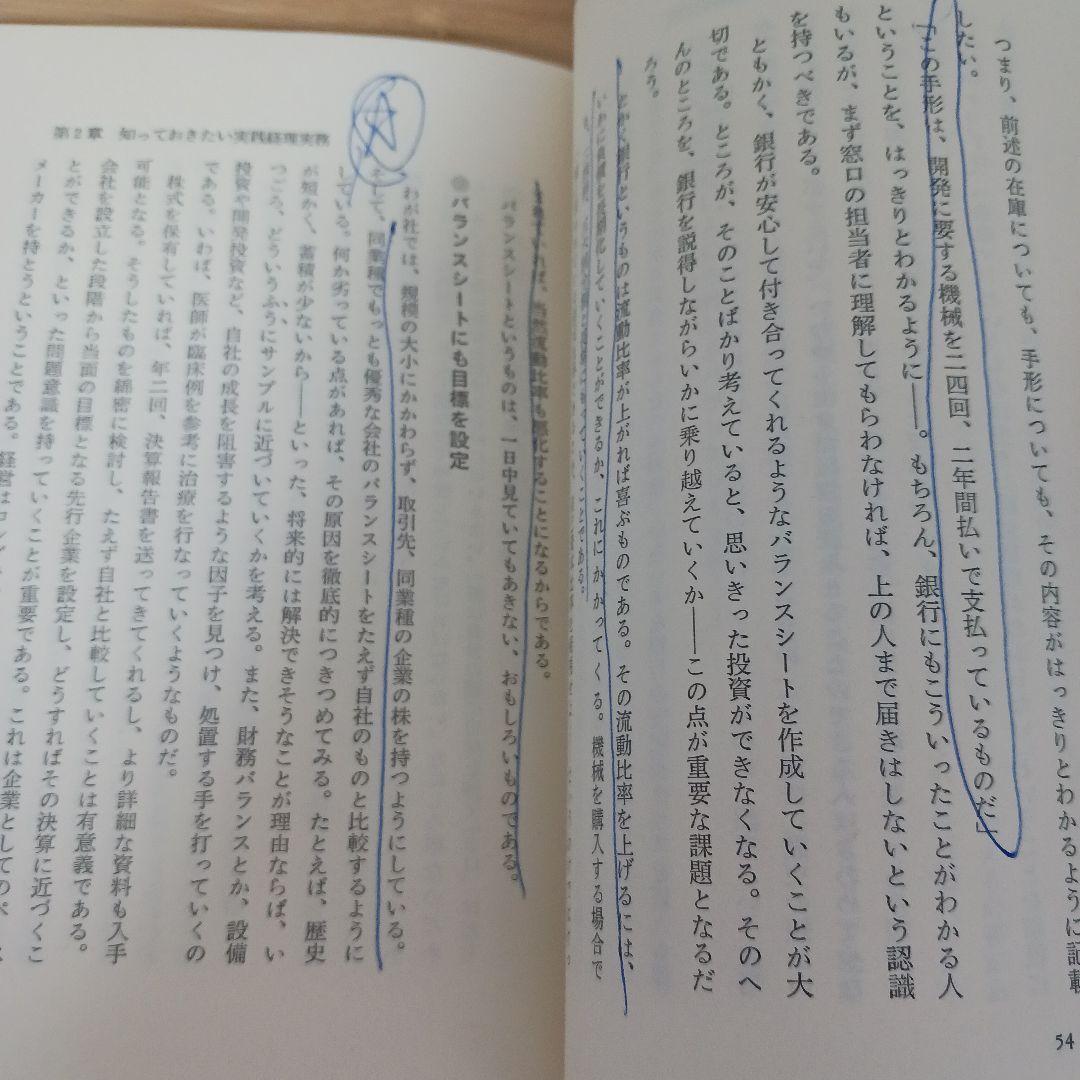 つまり、前述の在庫についても、手形についても、その内容がはっきりとわかるように記載
したい。
「この手形は、開発に要する機械を二四回、二年間払いで支払っているものだ」
ということを、はっきりとわかるように――。もちろん、銀行にもこういったことがわかる人
もいるが、まず窓口の担当者に理解してもらわなければ、上の人まで届きはしないという認識
を持つべきである。
ともかく、銀行が安心して付き合ってくれるようなバランスシートを作成していくことが大
切である。ところが、そのことばかり考えていると、思いきった投資ができなくなる。そのへ
んのところを、銀行を説得しながらいかに乗り越えていくか――この点が重要な課題となるだ
ろう。
とかく銀行というものは流動比率が上がれば喜ぶものである。その流動比率を上げるには、
していくことができるか、これにかかってくる。機械を購入する場合で
54
第2章 知っておきたい実践経理実務
れば、当然流動比率も悪化することになるからである。
バランスシートというものは、一日中見ていてもあきない、おもしろいものである。
◎バランスシートにも目標を設定
わが社では、規模の大小にかかわらず、取引先、同業種の企業の株を持つようにしている。
そして、同業種でもっとも優秀な会社のバランスシートをたえず自社のものと比較するように
している。何か劣っている点があれば、その原因を徹底的につきつめてみる。たとえば、歴史
が短かく、蓄積が少ないから――といった、将来的には解決できそうなことが理由ならば、い
つごろ、どういうふうにサンプルに近づいていくかを考える。また、財務バランスとか、設備
投資や開発投資など、自社の成長を阻害するような因子を見つけ、処置する手を打っていくの
である。いわば、医師が臨床例を参考に治療を行なっていくようなものだ。
株式を保有していれば、年二回、決算報告書を送ってきてくれるし、より詳細な資料も入手
可能となる。そうしたものを綿密に検討し、たえず自社と比較していくことは有意義である。
会社を設立した段階から当面の目標となる先行企業を設定し、どうすればその決算に近づくこ
とができるか、といった問題意識を持っていくことが重要である。これは企業としてのペース
メーカーを持とうということである。経営は